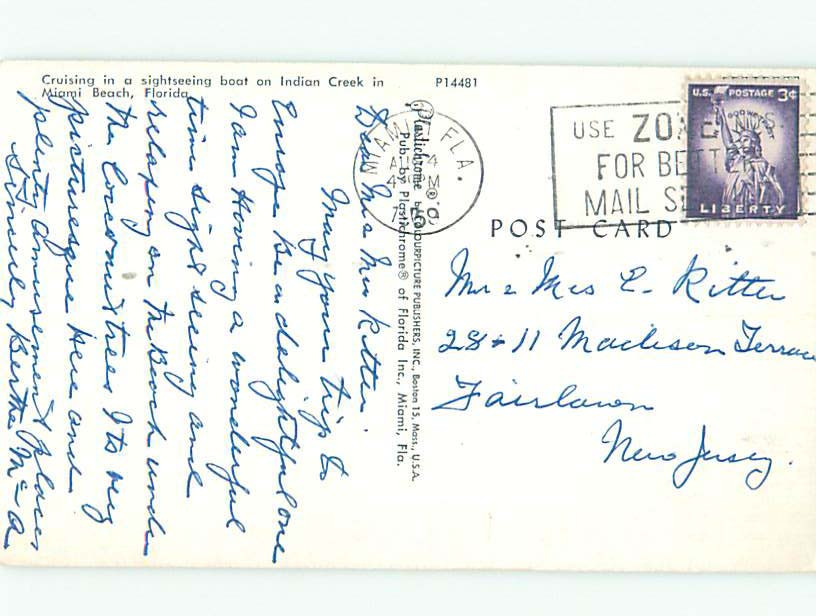 Cruising in a sightseeing boat on Indian Creek in
Miami Beach, Florida
P14481
Dear Mr & Mrs Ritter
May your trip to
Europe be a delightful one
I am having a wonderful
time sight seeing and
relaxing on the Beach under
the Cocoanut trees Its very
picturesque here and
plenty amusement places
Sincerely Bertha Mc
Plastichrome ® by COLOURPICTURE PUBLISHERS, INC., Boston 15, Mass., U.S.A.
Pub. by Plastichrome® of Florida Inc., Miami, Fla.
MIAMI FLA.
USE ZONE NOS.
FOR BETTER
MAIL
U.S. POSTAGE 3¢
IN GOD WE TRUST
LIBERTY
POST CARD
Mr & Mrs E. Ritter
28-11 Madison Terrace
Fairlawn
New Jersey.